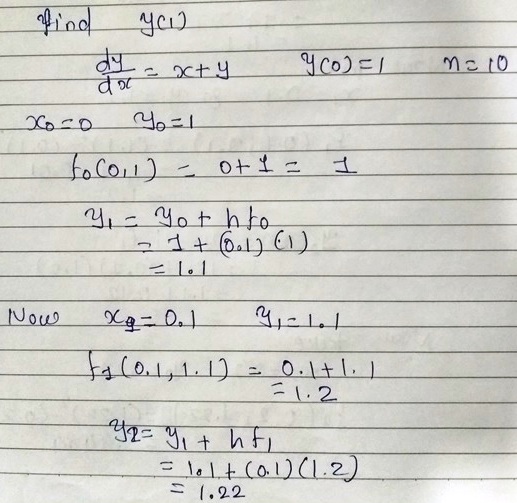 find y(1)
dy/dx = x+y y(0)=1 n=10
x0=0 y0=1
f0(0,1) = 0+1 = 1
y1 = y0 + hf0
= 1 + (0.1) (1)
= 1.1
Now x1=0.1 y1=1.1
f1(0.1, 1.1) = 0.1+1.1
= 1.2
y2= y1 + hf1
= 1.1+(0.1)(1.2)
= 1.22